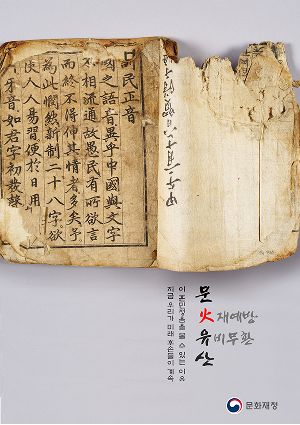 訓民正音
國之語音異乎中國與文字
不相流通故愚民有所欲言
而終不得伸其情者多矣予
爲此憫然新制二十八字欲
使人人易習便於日用
牙音如君字初發聲
문火유산
재예방
비무환
지금 우리가 미래 후손들이 계속
이 훈민정음을 볼 수 있는 이유
문화재청